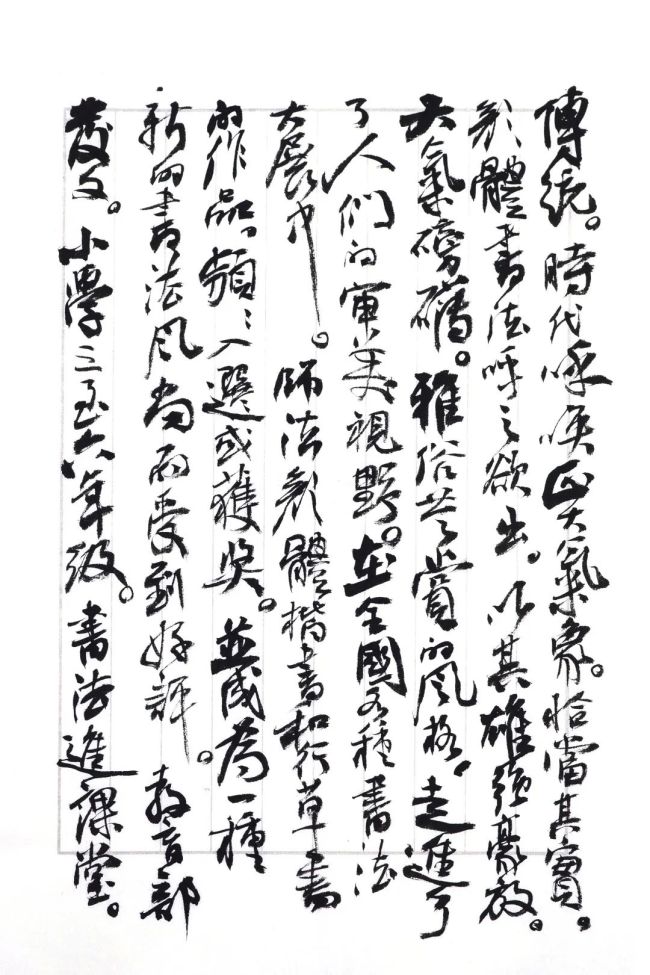 傳統。時代呼喚正大氣象。恰當其實。
顏體書法呼之欲出。以其雄強豪放。
大氣磅礴。雅俗共賞的風格。走進了
了人們的審美視野。在全國各種書法
大展中。師法顏體楷書和行草書
的作品。頻〻入選或獲獎。並成為一種
新的書法風尚而受到好評。教育部
發文。小學三至六年級。書法進課堂。